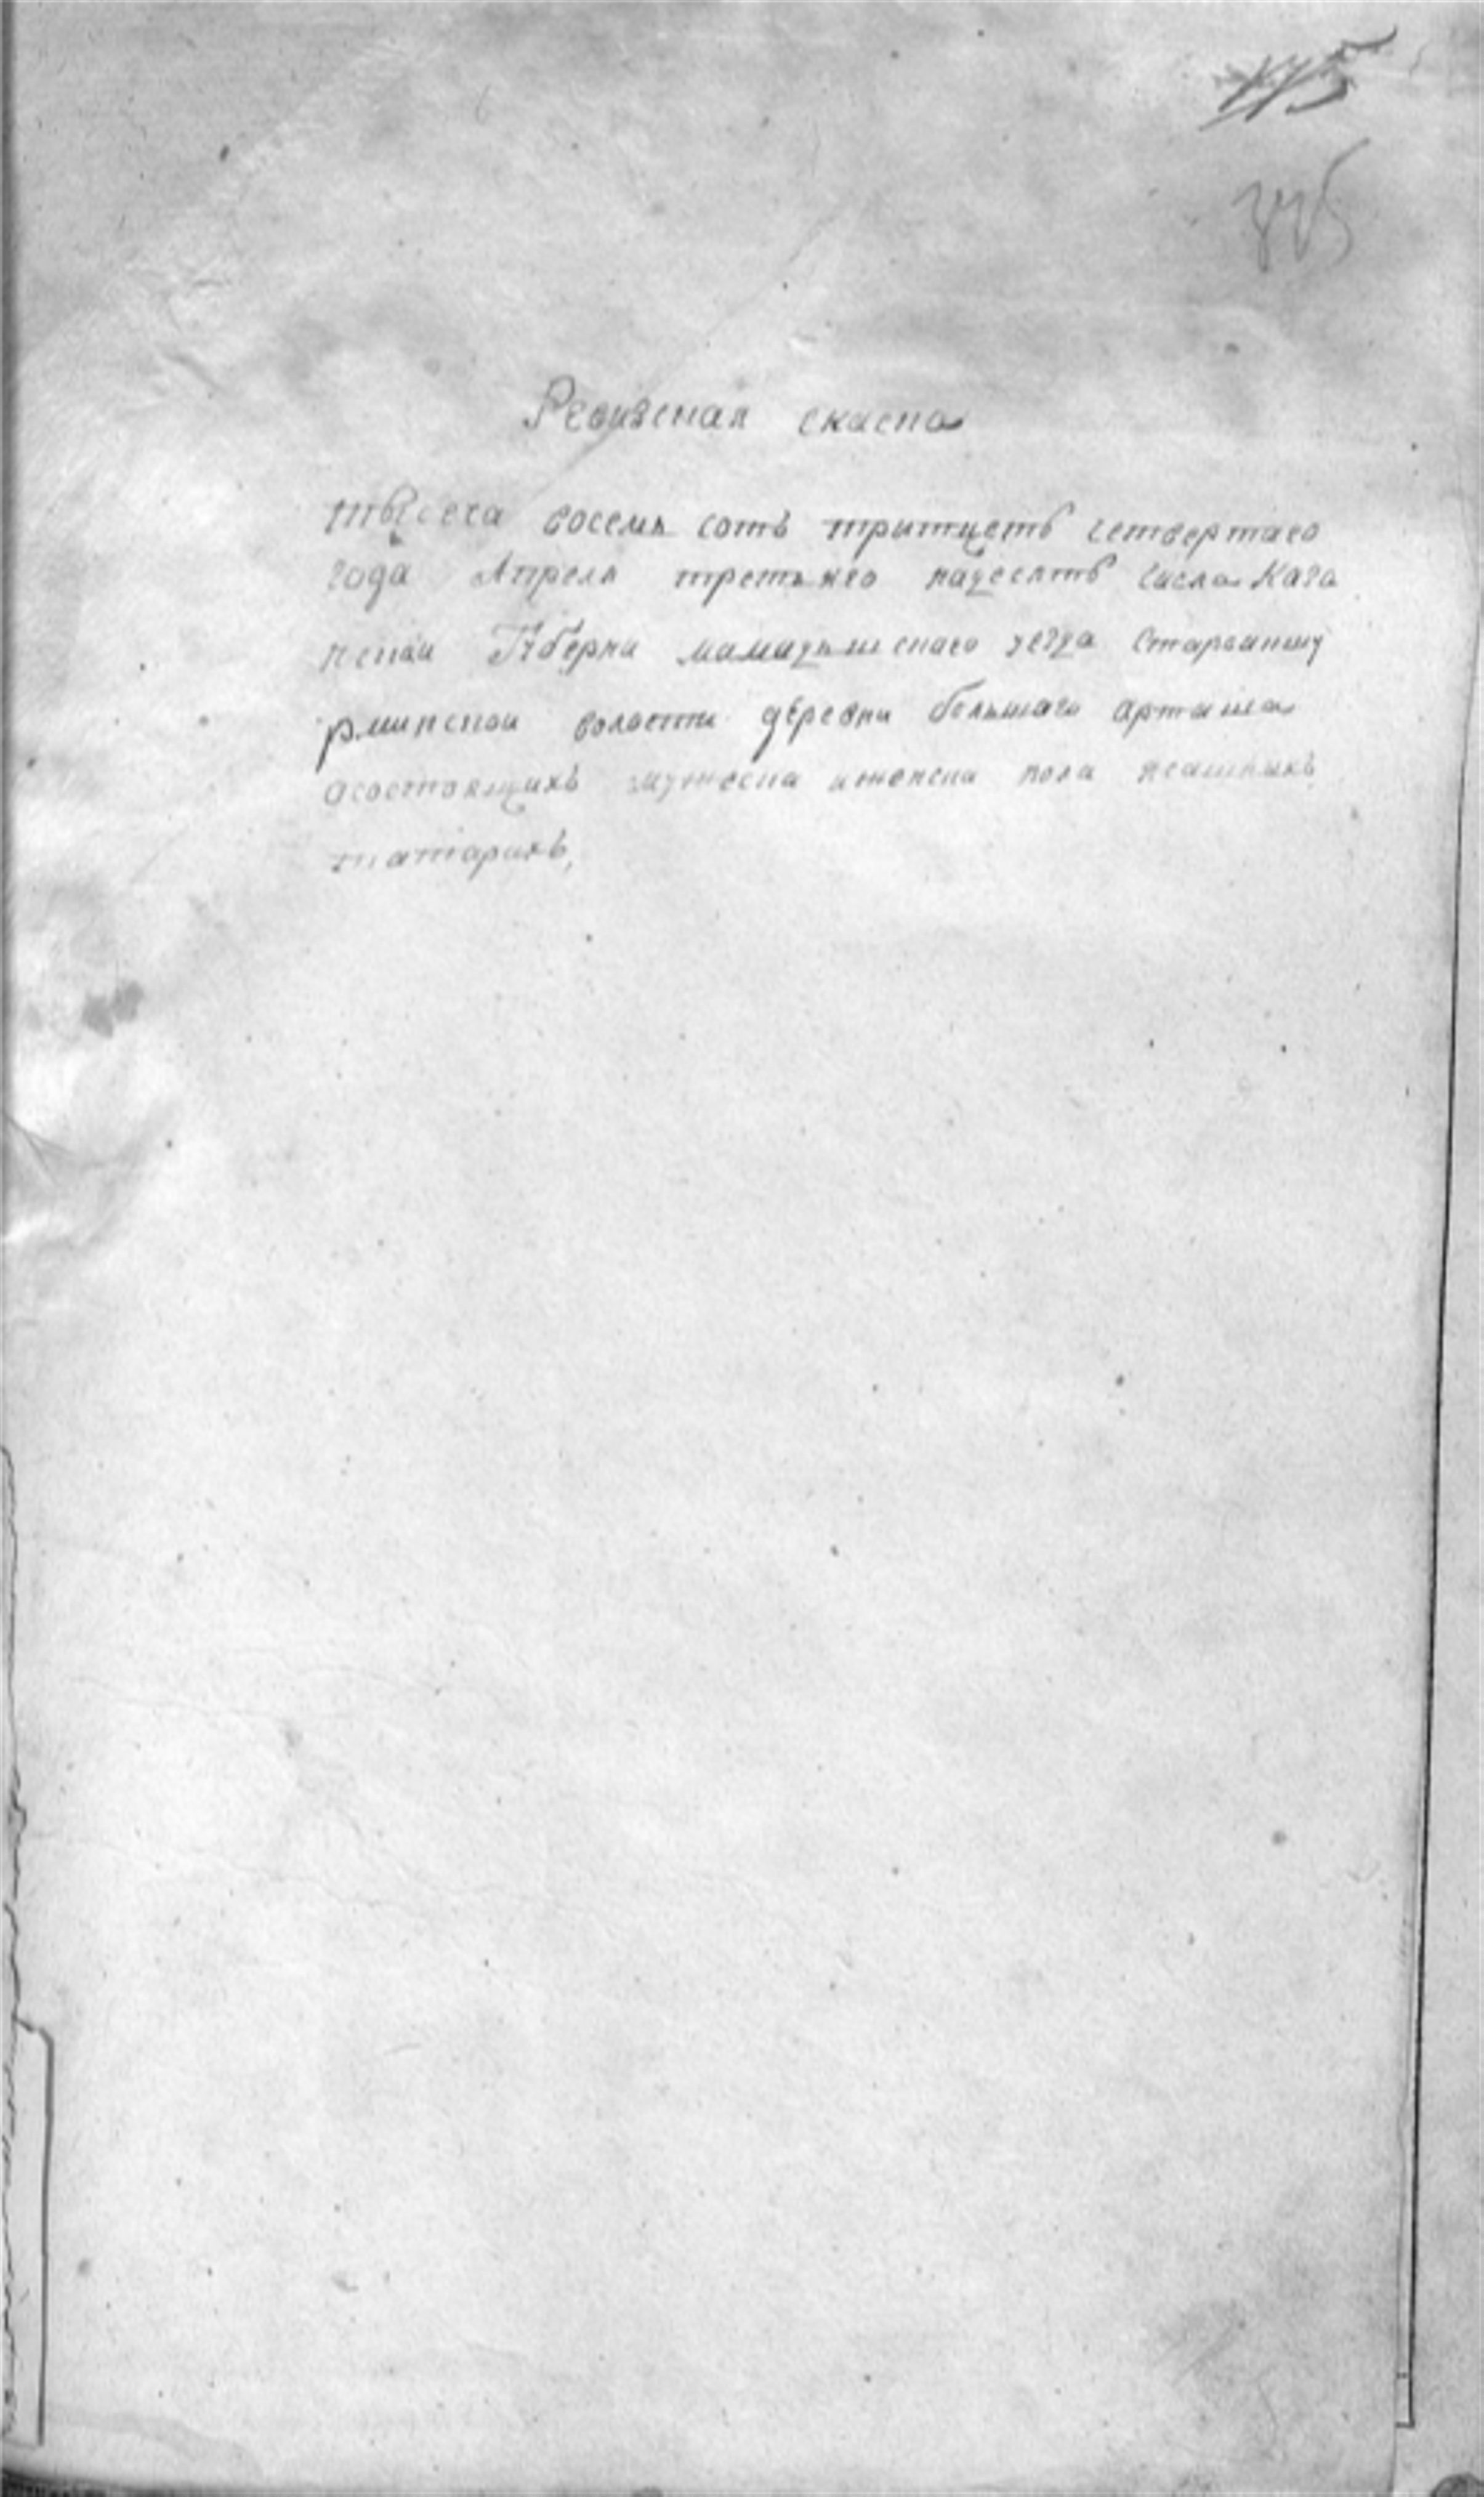 Ревизская скаска
тысеча восемь сотъ тритцеть четвертаго
года Апреля третьяго надесять числа Каза
нскаи Губерни мамадышскаго уезда Старвашиу
рминской воластти деревни большаго арташа
осостоящихъ мужеска иженска пола ясашныхъ
татарахъ,